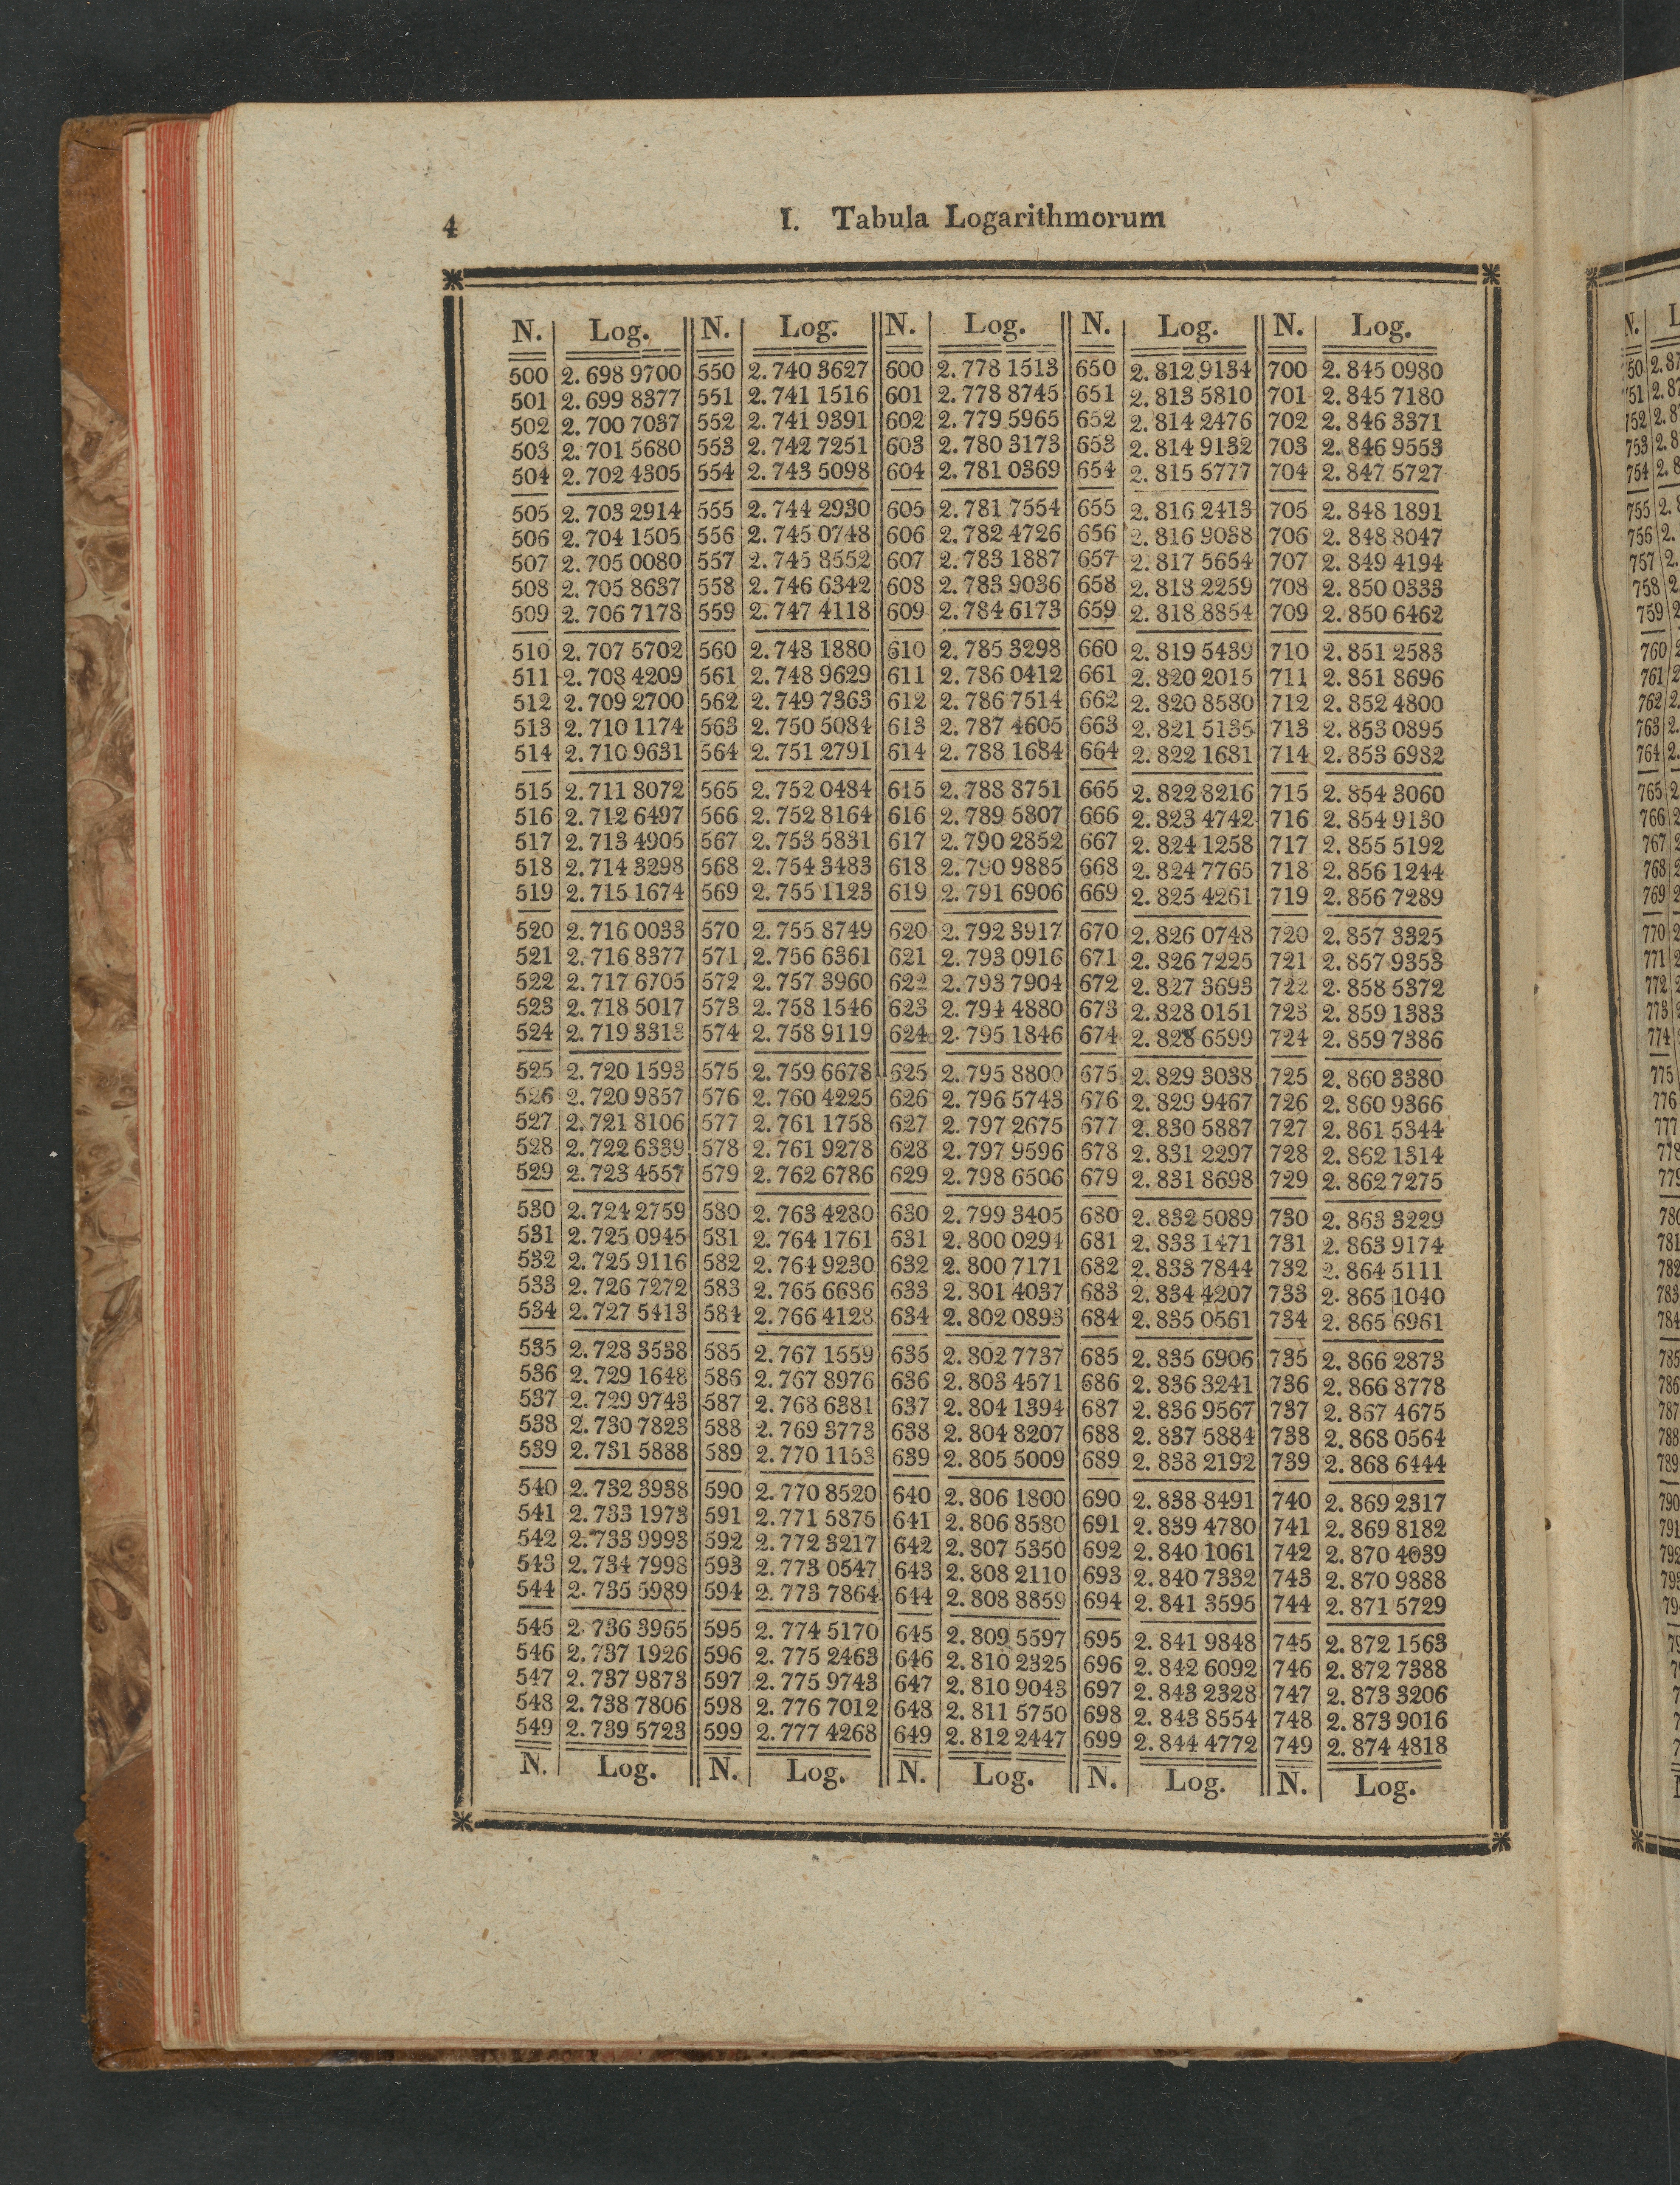 4 I. Tabula Logarithmorum
N. Log. N. Log. N. Log. N. Log. N. Log.
500 2.698 9700 550 2.740 3627 600 2.778 1513 650 2.812 9134 700 2.845 0980
501 2.699 8377 551 2.741 1516 601 2.778 8745 651 2.813 5810 701 2.845 7180
502 2.700 7037 552 2.741 9391 602 2.779 5965 652 2.814 2476 702 2.846 3371
503 2.701 5680 553 2.742 7251 603 2.780 3173 653 2.814 9132 703 2.846 9553
504 2.702 4305 554 2.743 5098 604 2.781 0369 654 2.815 5777 704 2.847 5727
505 2.703 2914 555 2.744 2930 605 2.781 7554 655 2.816 2413 705 2.848 1891
506 2.704 1505 556 2.745 0748 606 2.782 4726 656 2.816 9038 706 2.848 8047
507 2.705 0080 557 2.745 8552 607 2.783 1887 657 2.817 5654 707 2.849 4194
508 2.705 8637 558 2.746 6342 608 2.783 9036 658 2.818 2259 708 2.850 0333
509 2.706 7178 559 2.747 4118 609 2.784 6173 659 2.818 8854 709 2.850 6462
510 2.707 5702 560 2.748 1880 610 2.785 3298 660 2.819 5439 710 2.851 2583
511 2.708 4209 561 2.748 9629 611 2.786 0412 661 2.820 2015 711 2.851 8696
512 2.709 2700 562 2.749 7363 612 2.786 7514 662 2.820 8580 712 2.852 4800
513 2.710 1174 563 2.750 5084 613 2.787 4605 663 2.821 5135 713 2.853 0895
514 2.710 9631 564 2.751 2791 614 2.788 1684 664 2.822 1681 714 2.853 6982
515 2.711 8072 565 2.752 0484 615 2.788 8751 665 2.822 8216 715 2.854 3060
516 2.712 6497 566 2.752 8164 616 2.789 5807 666 2.823 4742 716 2.854 9130
517 2.713 4905 567 2.753 5831 617 2.790 2852 667 2.824 1258 717 2.855 5192
518 2.714 3298 568 2.754 3483 618 2.790 9885 668 2.824 7765 718 2.856 1244
519 2.715 1674 569 2.755 1123 619 2.791 6906 669 2.825 4261 719 2.856 7289
520 2.716 0033 570 2.755 8749 620 2.792 3917 670 2.826 0748 720 2.857 3325
521 2.716 8377 571 2.756 6361 621 2.793 0916 671 2.826 7225 721 2.857 9353
522 2.717 6705 572 2.757 3960 622 2.793 7904 672 2.827 3693 722 2.858 5372
523 2.718 5017 573 2.758 1546 623 2.794 4880 673 2.828 0151 723 2.859 1383
524 2.719 3313 574 2.758 9119 624 2.795 1846 674 2.828 6599 724 2.859 7386
525 2.720 1593 575 2.759 6678 625 2.795 8800 675 2.829 3038 725 2.860 3380
526 2.720 9857 576 2.760 4225 626 2.796 5743 676 2.829 9467 726 2.860 9366
527 2.721 8106 577 2.761 1758 627 2.797 2675 677 2.830 5887 727 2.861 5344
528 2.722 6339 578 2.761 9278 628 2.797 9596 678 2.831 2297 728 2.862 1314
529 2.723 4557 579 2.762 6786 629 2.798 6506 679 2.831 8698 729 2.862 7275
530 2.724 2759 580 2.763 4280 630 2.799 3405 680 2.832 5089 730 2.863 3229
531 2.725 0945 581 2.764 1761 631 2.800 0294 681 2.833 1471 731 2.863 9174
532 2.725 9116 582 2.764 9230 632 2.800 7171 682 2.833 7844 732 2.864 5111
533 2.726 7272 583 2.765 6686 633 2.801 4037 683 2.834 4207 733 2.865 1040
534 2.727 5413 584 2.766 4128 634 2.802 0893 684 2.835 0561 734 2.865 6961
535 2.728 3538 585 2.767 1559 635 2.802 7737 685 2.835 6906 735 2.866 2873
536 2.729 1648 586 2.767 8976 636 2.803 4571 686 2.836 3241 736 2.866 8778
537 2.729 9743 587 2.768 6381 637 2.804 1394 687 2.836 9567 737 2.867 4675
538 2.730 7823 588 2.769 3773 638 2.804 8207 688 2.837 5884 738 2.868 0564
539 2.731 5888 589 2.770 1153 639 2.805 5009 689 2.838 2192 739 2.868 6444
540 2.732 3938 590 2.770 8520 640 2.806 1800 690 2.838 8491 740 2.869 2317
541 2.733 1973 591 2.771 5875 641 2.806 8580 691 2.839 4780 741 2.869 8182
542 2.733 9993 592 2.772 3217 642 2.807 5350 692 2.840 1061 742 2.870 4039
543 2.734 7998 593 2.773 0547 643 2.808 2110 693 2.840 7332 743 2.870 9888
544 2.735 5989 594 2.773 7864 644 2.808 8859 694 2.841 3595 744 2.871 5729
545 2.736 3965 595 2.774 5170 645 2.809 5597 695 2.841 9848 745 2.872 1563
546 2.737 1926 596 2.775 2463 646 2.810 2325 696 2.842 6092 746 2.872 7388
547 2.737 9873 597 2.775 9743 647 2.810 9043 697 2.843 2328 747 2.873 3206
548 2.738 7806 598 2.776 7012 648 2.811 5750 698 2.843 8554 748 2.873 9016
549 2.739 5723 599 2.777 4268 649 2.812 2447 699 2.844 4772 749 2.874 4818
N. Log. N. Log. N. Log. N. Log. N. Log.